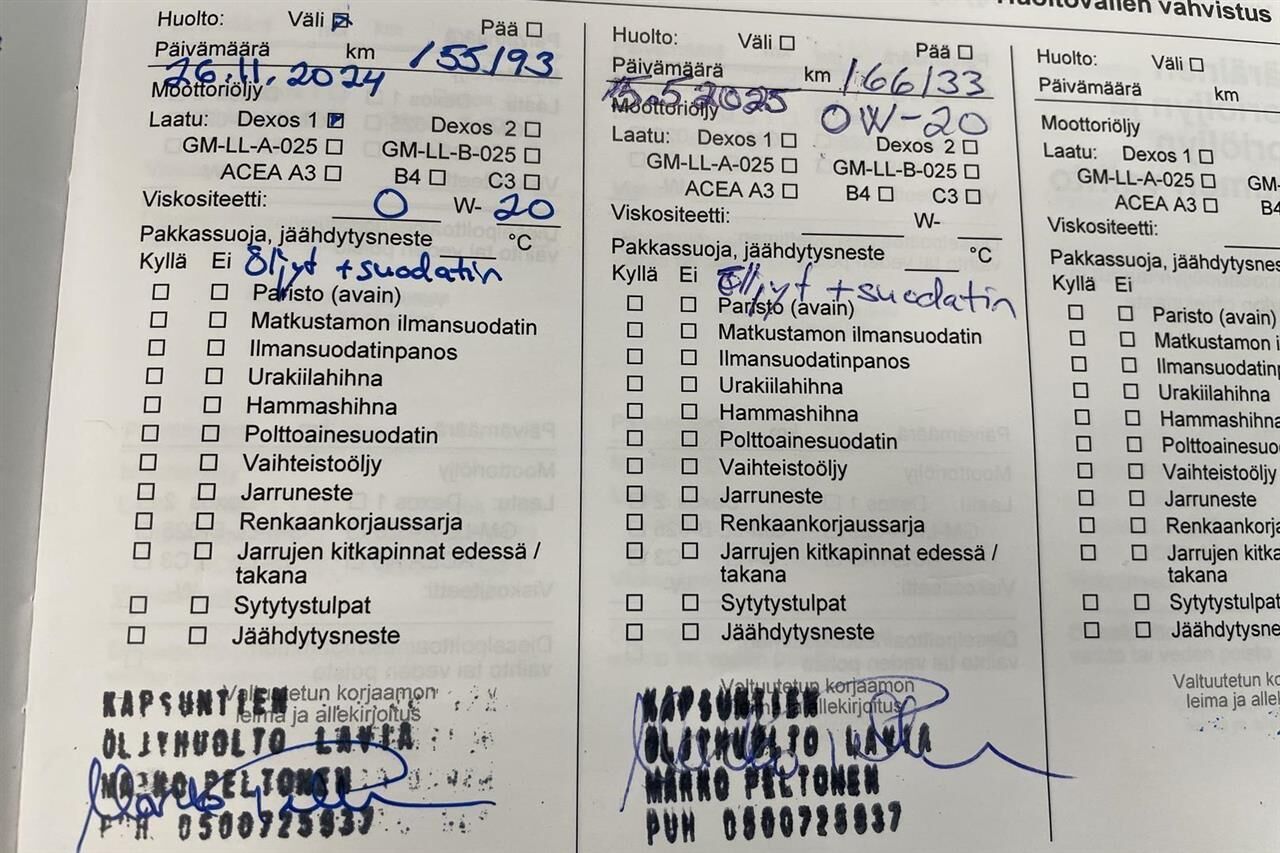 Huoltovälien vahvistus
Huolto: Väli ☑ Pää ☐
Päivämäärä km 155193
26.11.2024
Moottoriöljy
Laatu: Dexos 1 ☑ Dexos 2 ☐
GM-LL-A-025 ☐ GM-LL-B-025 ☐
ACEA A3 ☐ B4 ☐ C3 ☐
Viskositeetti: 0 W- 20
Pakkassuoja, jäähdytysneste °C
Kyllä Ei Öljyt + suodatin
☐ ☐ Paristo (avain)
☐ ☐ Matkustamon ilmansuodatin
☐ ☐ Ilmansuodatinpanos
☐ ☐ Urakiilahihna
☐ ☐ Hammashihna
☐ ☐ Polttoainesuodatin
☐ ☐ Vaihteistoöljy
☐ ☐ Jarruneste
☐ ☐ Renkaankorjaussarja
☐ ☐ Jarrujen kitkapinnat edessä /
takana
☐ ☐ Sytytystulpat
☐ ☐ Jäähdytysneste
Valtuutetun korjaamon
leima ja allekirjoitus
KAPSUNTIEN
ÖLJYHUOLTO LAVIA
MARKO PELTONEN
PUH 0500725937
Huolto: Väli ☐ Pää ☐
Päivämäärä km 166133
15.5.2025
Moottoriöljy 0W-20
Laatu: Dexos 1 ☐ Dexos 2 ☐
GM-LL-A-025 ☐ GM-LL-B-025 ☐
ACEA A3 ☐ B4 ☐ C3 ☐
Viskositeetti: W-
Pakkassuoja, jäähdytysneste °C
Kyllä Ei Öljyt + suodatin
☐ ☐ Paristo (avain)
☐ ☐ Matkustamon ilmansuodatin
☐ ☐ Ilmansuodatinpanos
☐ ☐ Urakiilahihna
☐ ☐ Hammashihna
☐ ☐ Polttoainesuodatin
☐ ☐ Vaihteistoöljy
☐ ☐ Jarruneste
☐ ☐ Renkaankorjaussarja
☐ ☐ Jarrujen kitkapinnat edessä /
takana
☐ ☐ Sytytystulpat
☐ ☐ Jäähdytysneste
Valtuutetun korjaamon
leima ja allekirjoitus
KAPSUNTIEN
ÖLJYHUOLTO LAVIA
MARKO PELTONEN
PUH 0500725937
Huolto: Väli ☐
Päivämäärä km
Moottoriöljy
Laatu: Dexos 1 ☐
GM-LL-A-025 ☐ GM-
ACEA A3 ☐ B4
Viskositeetti:
Pakkassuoja, jäähdytysnes
Kyllä Ei
☐ ☐ Paristo (avain)
☐ ☐ Matkustamon i
☐ ☐ Ilmansuodatinp
☐ ☐ Urakiilahihna
☐ ☐ Hammashihna
☐ ☐ Polttoainesuo
☐ ☐ Vaihteistoöljy
☐ ☐ Jarruneste
☐ ☐ Renkaankorja
☐ ☐ Jarrujen kitka
takana
☐ ☐ Sytytystulpat
☐ ☐ Jäähdytysne
Valtuutetun ko
leima ja allek